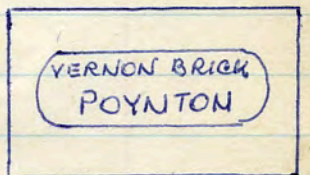 VERNON BRICK
POYNTON